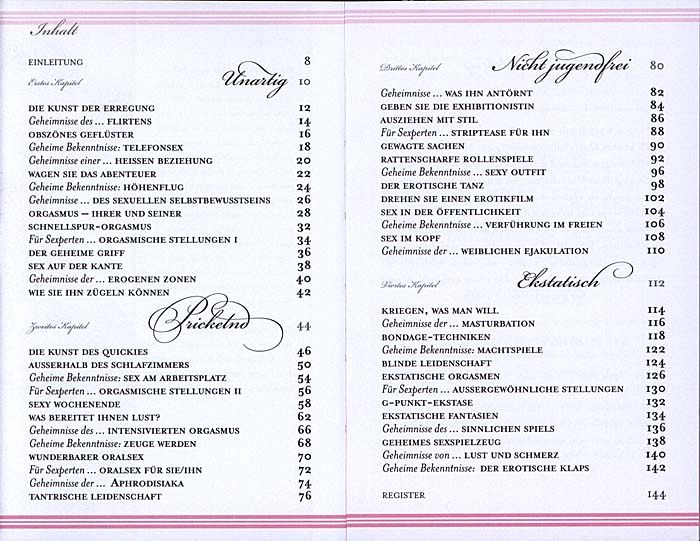 Inhalt
EINLEITUNG 8
Erstes Kapitel Unartig 10
DIE KUNST DER ERREGUNG 12
Geheimnisse des ... FLIRTENS 14
OBSZÖNES GEFLÜSTER 16
Geheime Bekenntnisse: TELEFONSEX 18
Geheimnisse einer ... HEISSEN BEZIEHUNG 20
WAGEN SIE DAS ABENTEUER 22
Geheime Bekenntnisse: HÖHENFLUG 24
Geheimnisse ... DES SEXUELLEN SELBSTBEWUSSTSEINS 26
ORGASMUS – IHRER UND SEINER 28
SCHNELLSPUR-ORGASMUS 32
Für Sexperten ... ORGASMISCHE STELLUNGEN I 34
DER GEHEIME GRIFF 36
SEX AUF DER KANTE 38
Geheimnisse der ... EROGENEN ZONEN 40
WIE SIE IHN ZÜGELN KÖNNEN 42
Zweites Kapitel Prickelnd 44
DIE KUNST DES QUICKIES 46
AUSSERHALB DES SCHLAFZIMMERS 50
Geheime Bekenntnisse: SEX AM ARBEITSPLATZ 54
Für Sexperten ... ORGASMISCHE STELLUNGEN II 56
SEXY WOCHENENDE 58
WAS BEREITET IHNEN LUST? 62
Geheimnisse des ... INTENSIVIERTEN ORGASMUS 66
Geheime Bekenntnisse: ZEUGE WERDEN 68
WUNDERBARER ORALSEX 70
Für Sexperten ... ORALSEX FÜR SIE/IHN 72
Geheimnisse der ... APHRODISIAKA 74
TANTRISCHE LEIDENSCHAFT 76
Drittes Kapitel Nicht jugendfrei 80
Geheimnisse ... WAS IHN ANTÖRNT 82
GEBEN SIE DIE EXHIBITIONISTIN 84
AUSZIEHEN MIT STIL 86
Für Sexperten ... STRIPTEASE FÜR IHN 88
GEWAGTE SACHEN 90
RATTENSCHARFE ROLLENSPIELE 92
Geheime Bekenntnisse ... SEXY OUTFIT 96
DER EROTISCHE TANZ 98
DREHEN SIE EINEN EROTIKFILM 102
SEX IN DER ÖFFENTLICHKEIT 104
Geheime Bekenntnisse ... VERFÜHRUNG IM FREIEN 106
SEX IM KOPF 108
Geheimnisse der ... WEIBLICHEN EJAKULATION 110
Viertes Kapitel Ekstatisch 112
KRIEGEN, WAS MAN WILL 114
Geheimnisse der ... MASTURBATION 116
BONDAGE-TECHNIKEN 118
Geheime Bekenntnisse: MACHTSPIELE 122
BLINDE LEIDENSCHAFT 124
EKSTATISCHE ORGASMEN 126
Für Sexperten ... AUSSERGEWÖHNLICHE STELLUNGEN 130
G-PUNKT-EKSTASE 132
EKSTATISCHE FANTASIEN 134
Geheimnisse des ... SINNLICHEN SPIELS 136
GEHEIMES SEXSPIELZEUG 138
Geheimnisse von ... LUST UND SCHMERZ 140
Geheime Bekenntnisse: DER EROTISCHE KLAPS 142
REGISTER 144